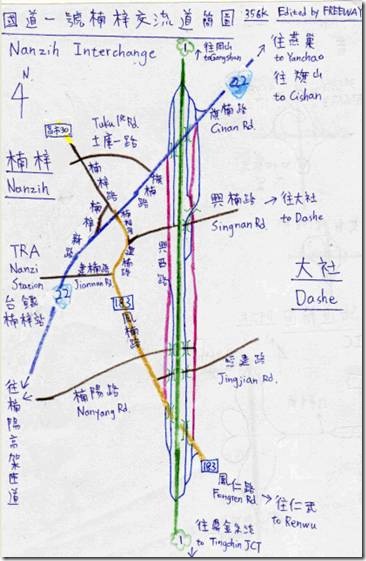 國道一號楠梓交流道簡圖 356K Edited by FREEWAY
Nanzih Interchange
1
往岡山
to Gangshan
往燕巢
to Yanchao
往旗山
to Cishan
22
N
4
高市30
Tuku 1st Rd.
土庫一路
旗楠路
Cinan Rd.
楠梓
Nanzih
楠梓路
興楠路
Singnan Rd.
往大社
to Dashe
TRA
Nanzi
Station
台鐵
楠梓站
建楠路
Jiannan Rd.
興西路
大社
Dashe
22
183
鳳楠路
楠陽路
Nanyang Rd.
Jingjian Rd.
往楠陽高架匝道
183
鳳仁路
Fongren Rd.
往仁武
to Renwu
1
往鼎金系統
to Tingchin JCT